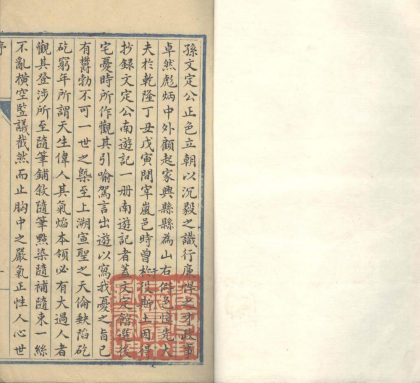 孫文定公正色立朝以沉毅之識行廉悍之才政事
卓然彪炳中外顧起家興縣縣為山右僻邑憶先大
夫於乾隆丁丑戊寅間宰巖邑時曾於彼都士用得
抄錄文定公南遊記一册南遊記者蓋文定
宅憂時所作觀其引喻駕言出遊以寫我憂之旨已
有鬱勃不可一世之槩至上溯宣聖之天倫缺陷矻
矻窮年所謂天生偉人其氣焰本領必有大過人者
觀其登涉所至隨筆鋪敘隨筆點染隨補隨束一絲
不亂橫空監議截然而止胸中之嚴氣正性人心世
序